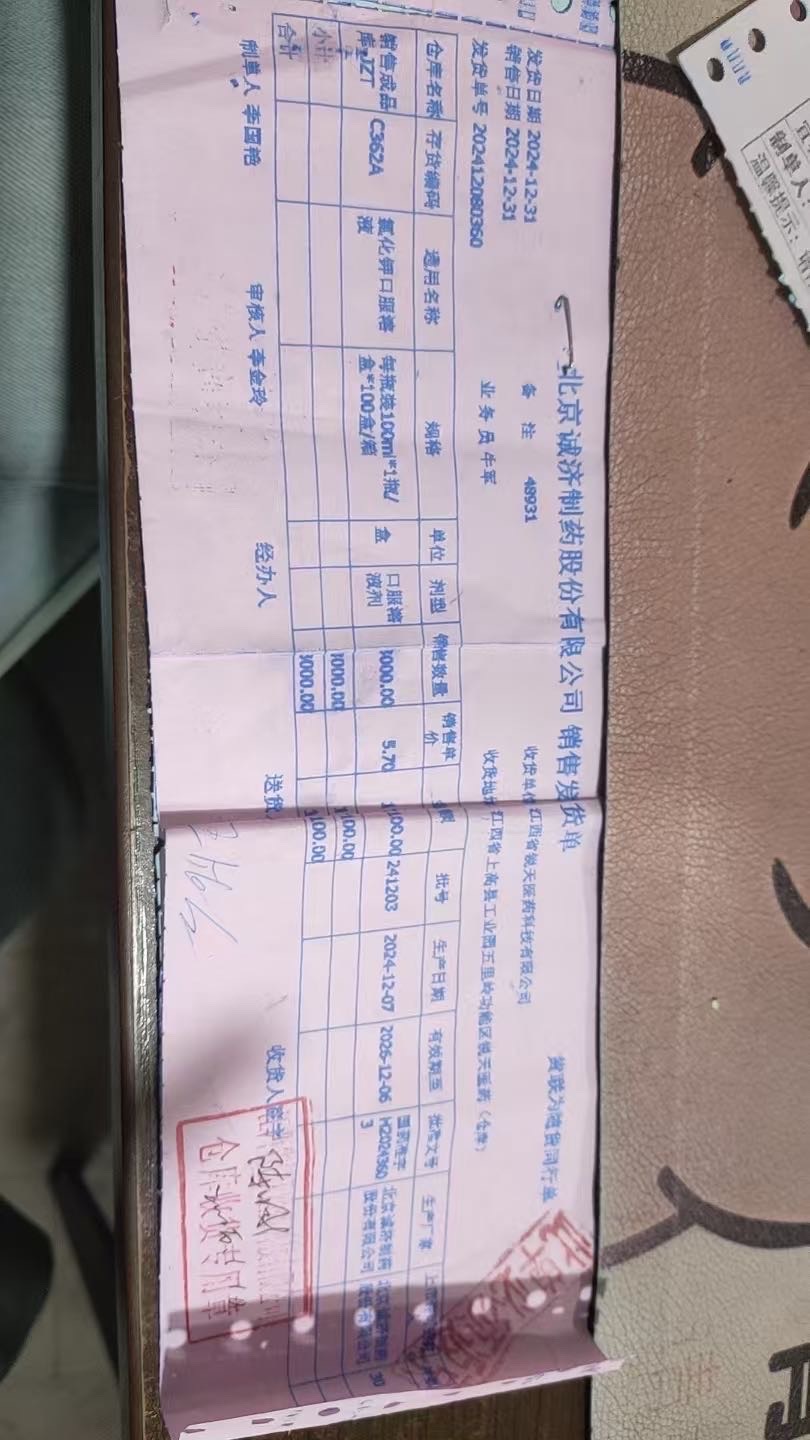 北京诚济制药股份有限公司 销售发货单
黄联为随货同行单
发货日期 2024-12-31
备 注 48931
收货单位 江西省镜天医药科技有限公司
销售日期 2024-12-31
发货单号 202412080360
业 务 员 牛军
收货地址 江西省上高县工业园五里岭功能区镜天医药（仓库）
仓库名称 存货编码 通用名称 规格 单位 剂型 销售数量 销售单价 批号 生产日期 有效期至 批准文号 生产厂家
销售成品库JZT C362A 氯化钾口服溶液 每瓶装100ml*1瓶/盒*100盒/箱 盒 口服溶液剂 000.00 5.70 100.00 241203 2024-12-07 2026-12-06 国药准字H20243603 北京诚济制药股份有限公司 30
小计 000.00 100.00
合计 000.00 100.00
制单人 李国艳
审核人 李金玲
经办人
送货
收货人签字
仓库收货专用章
制单人
温馨提示：